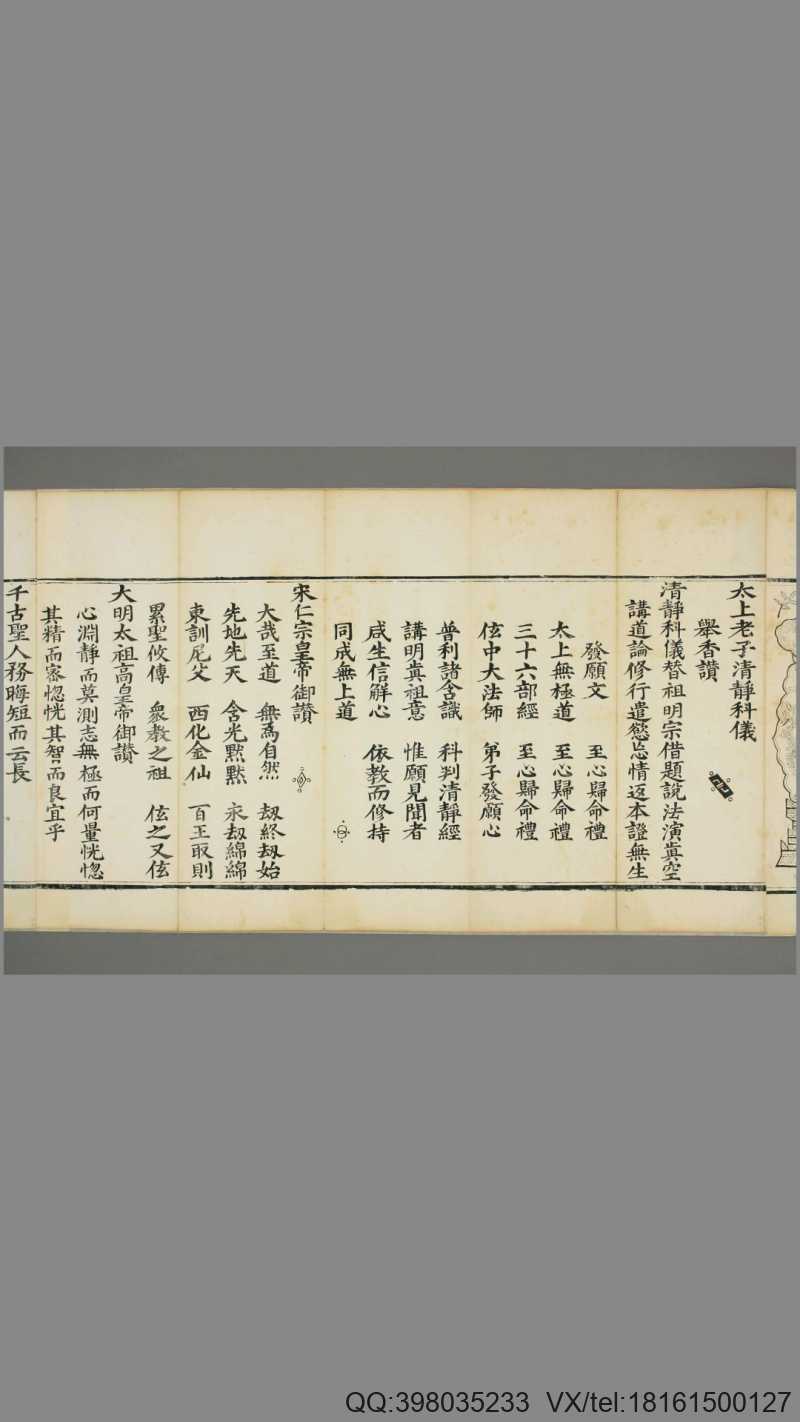 太上老子清靜科儀
舉香讃
清靜科儀替祖明宗借題說法演眞空
講道論修行遣慾忘情返本證無生
發願文　至心歸命禮
太上無極道　至心歸命禮
三十六部經　至心歸命禮
伭中大法師　第子發願心
普利諸含識　科判清靜經
講明眞祖意　惟願見聞者
咸生信解心　依教而修持
同成無上道
宋仁宗皇帝御讃
大哉至道　無爲自然　刼終刼始
先地先天　含光黙黙　永刼綿綿
東訓尼父　西化金仙　百王取則
累聖攸傳　衆教之祖　伭之又伭
大明太祖高皇帝御讃
心淵靜而莫測志無極而何量恍惚
其精而密惚恍其智而良宜乎
千古聖人務晦短而云長
QQ:398035233 VX/tel:18161500127